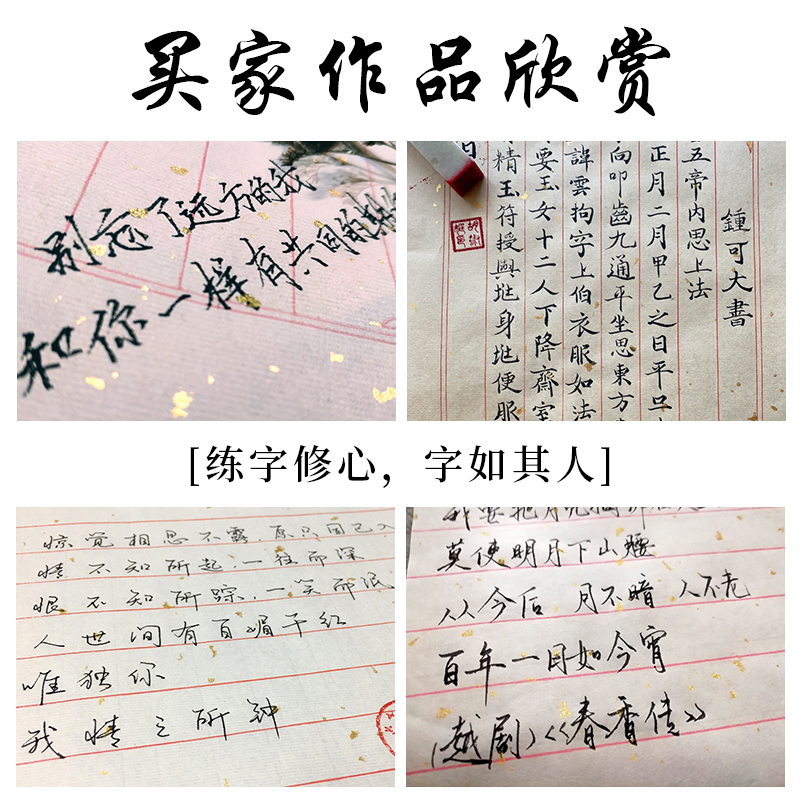 买家作品欣赏
别忘了远方的我
和你一样有共同的
鍾可大書
五帝内思上法
正月二月甲乙之日平旦
向叩齒九通平坐思東方
諱雲拘字上伯衣服如法
要玉女十二人下降齋室
精玉符授與𡉏身𡉏便服
[练字修心，字如其人]
惊觉相思不露，原只因已入
情不知所起，一往而深
恨不知所踪，一笑而泯
人世间有百媚千红
唯独你
我情之所钟
莫使明月下山腰
从今后 月不暗 人不老
百年一日如今宵
(越剧)《春香传》